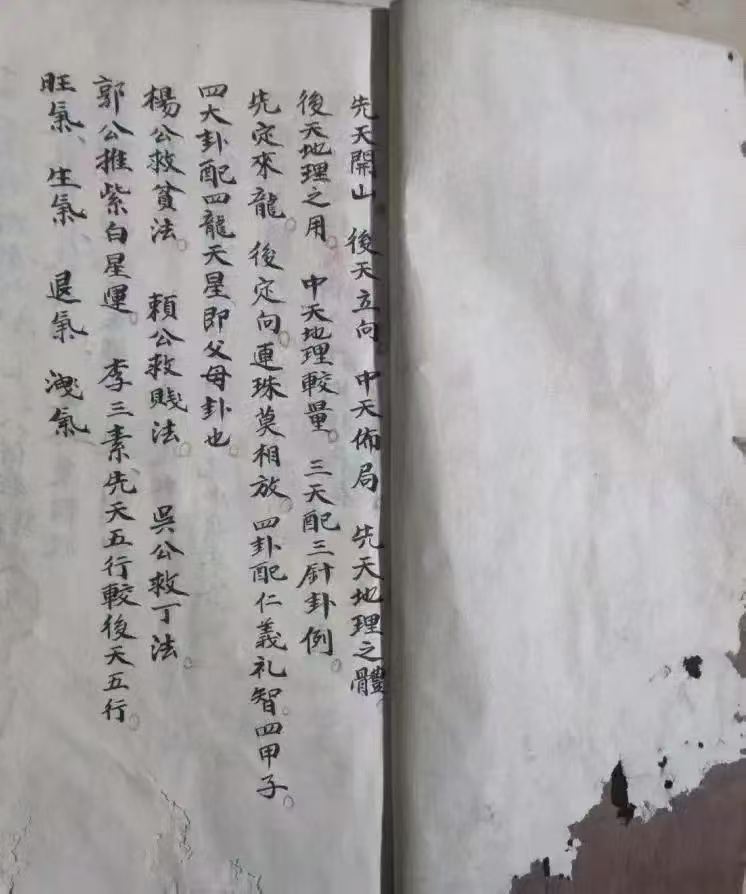 先天開山 後天立向 中天佈局 先天地理之體。
後天地理之用。 中天地理較量。 三天配三針卦例。
先定來龍 後定向。連珠莫相放。四卦配仁義礼智。四甲子。
四大卦配四龍天星即父母卦也。
楊公救貧法。 賴公救賤法。 吳公救丁法。
郭公推紫白星運。 李三素先天五行較後天五行。
旺氣、生氣 退氣 洩氣